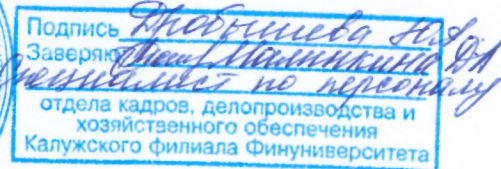 Подпись Дробышева Н.А
Заверяю Малинкина ДА
Специалист по персоналу
отдела кадров, делопроизводства и
хозяйственного обеспечения
Калужского филиала Финуниверситета